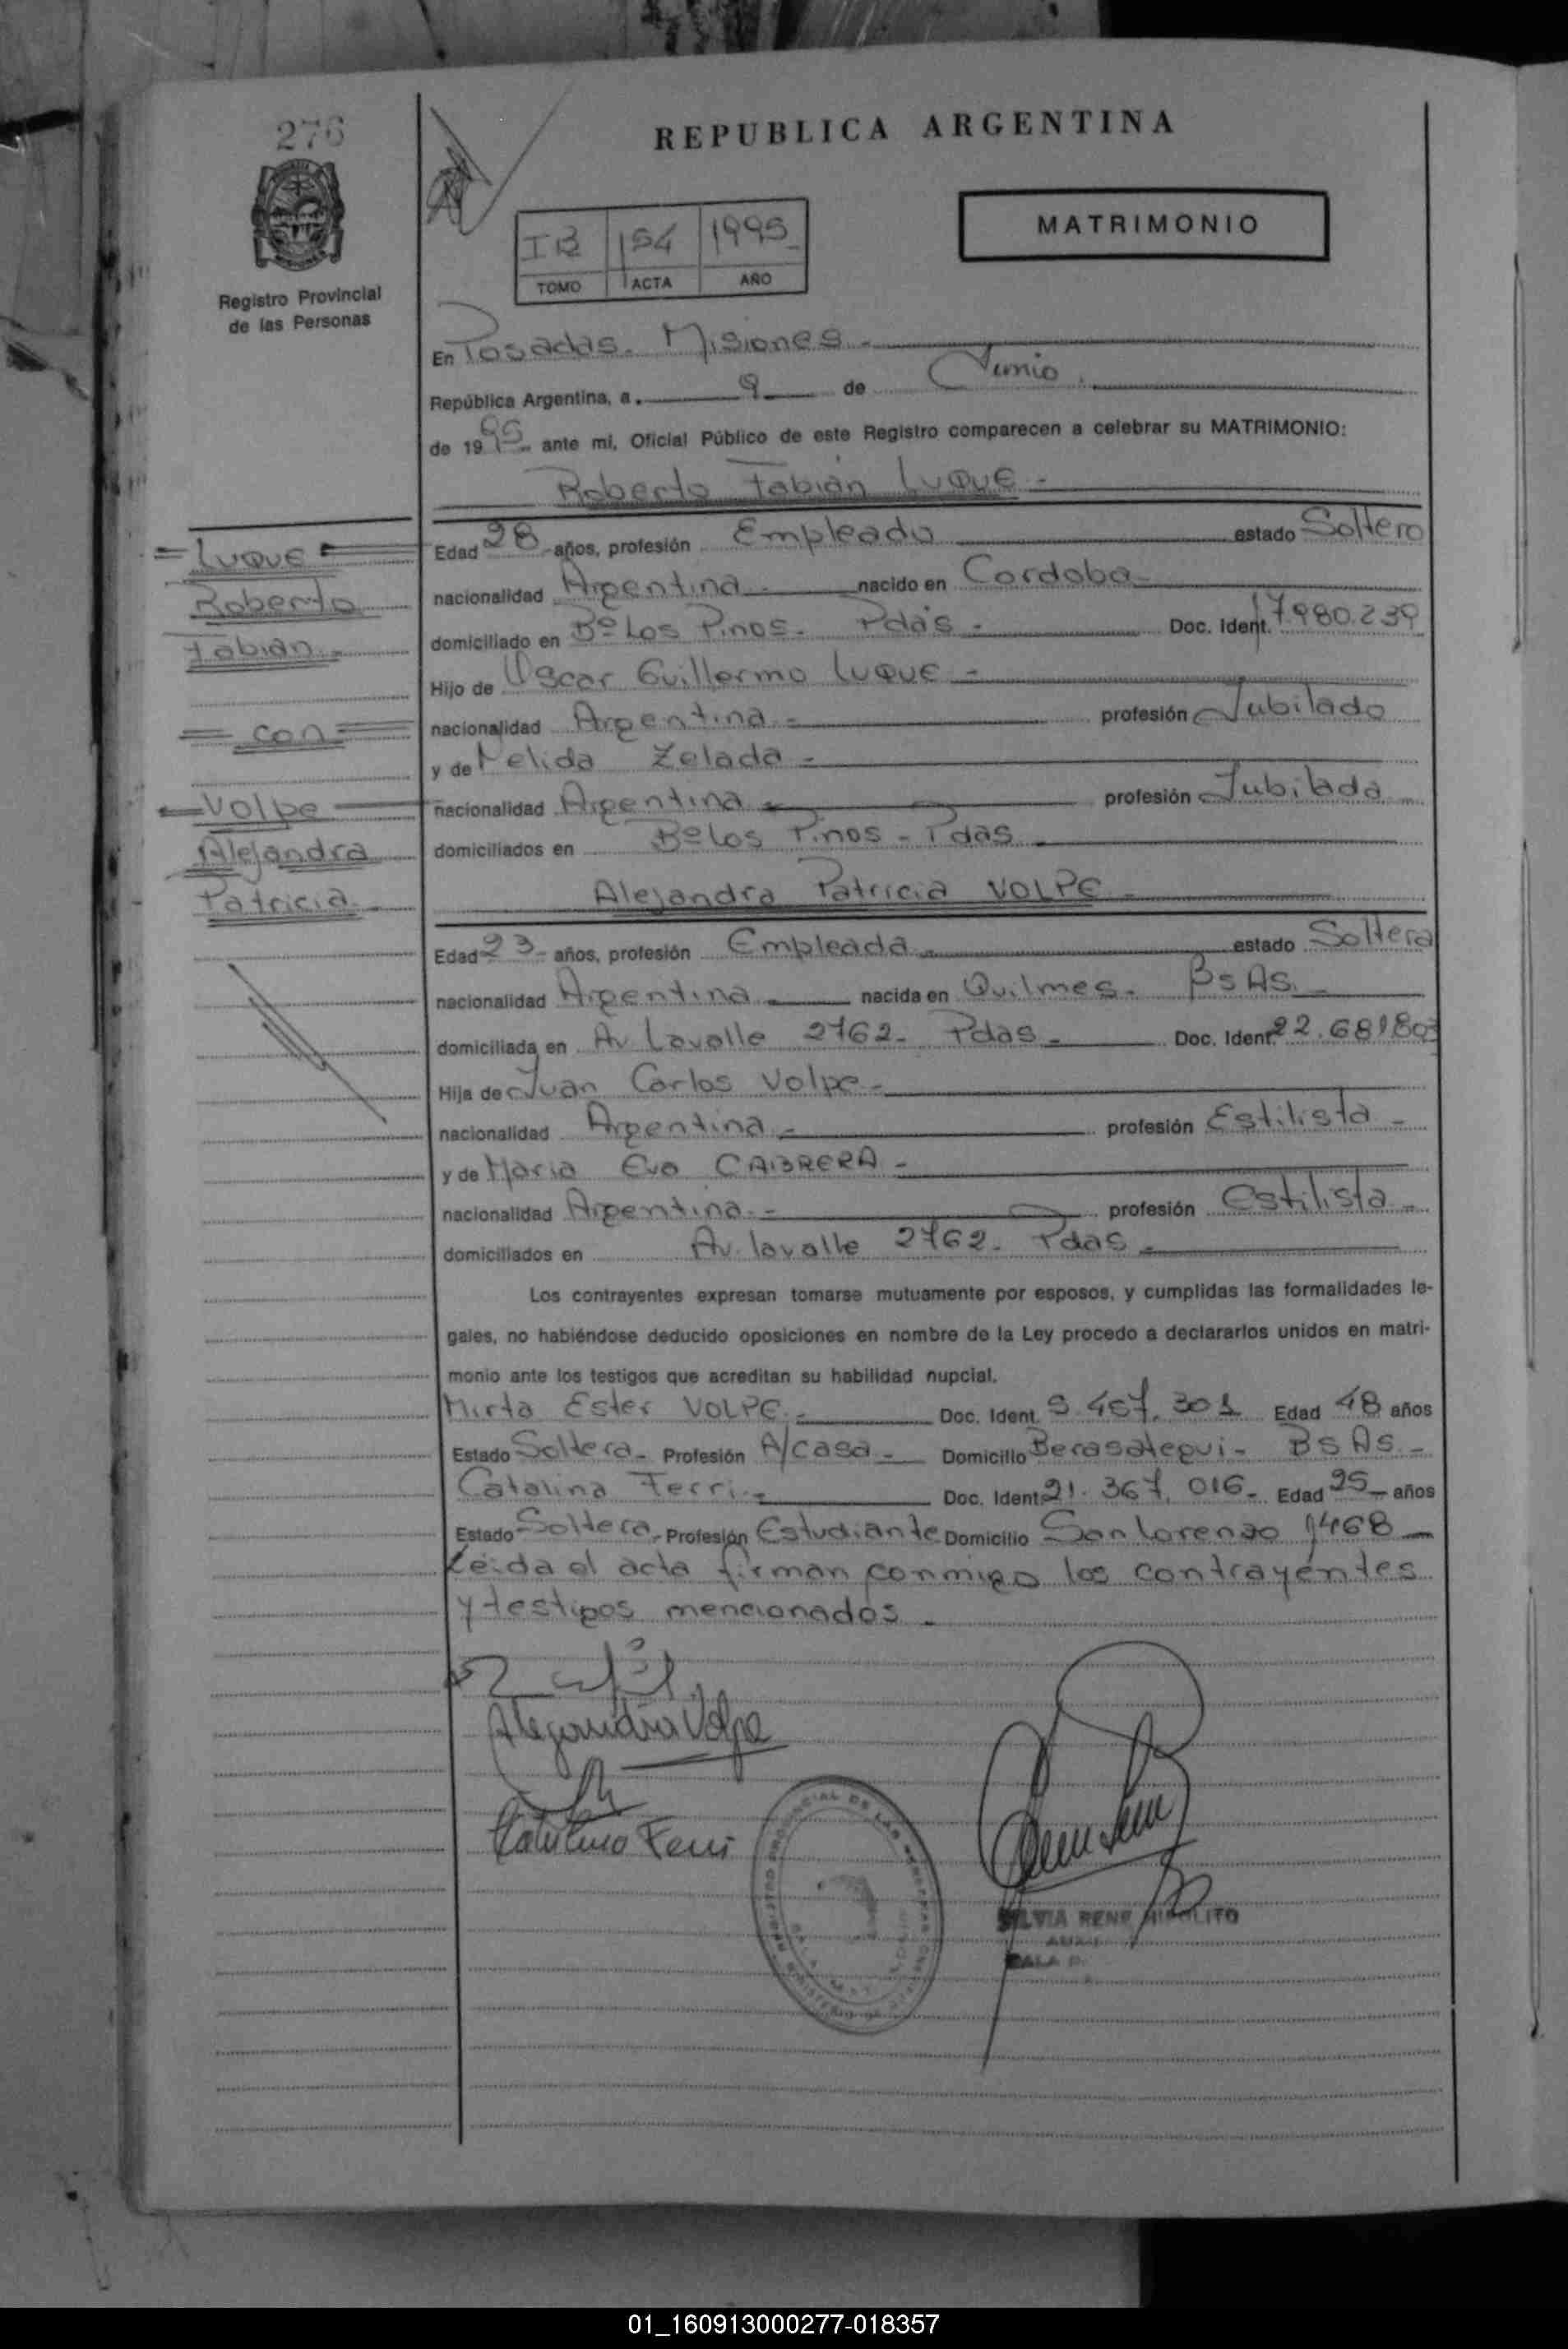 276
REPUBLICA ARGENTINA
MATRIMONIO
IB 154 1995
TOMO ACTA AÑO
Registro Provincial
de las Personas
En Posadas. Misiones
República Argentina, a 9 de Junio
de 1995 ante mi, Oficial Público de este Registro comparecen a celebrar su MATRIMONIO:
Roberto Fabián LUQUE
LUQUE
Roberto
Fabián
con
Volpe
Alejandra
Patricia
Edad 28 años, profesión Empleado estado Soltero
nacionalidad Argentina nacido en Cordoba
domiciliado en Bº Los Pinos. Pdas Doc. Ident. 17.980.239
Hijo de Oscar Guillermo LUQUE
nacionalidad Argentina profesión Jubilado
y de Nelida Zelada
nacionalidad Argentina profesión Jubilada
domiciliados en Bº Los Pinos - Pdas
Alejandra Patricia VOLPE
Edad 23 años, profesión Empleada estado Soltera
nacionalidad Argentina nacida en Quilmes. Bs As.
domiciliada en Av. Lavalle 2762. Pdas Doc. Ident. 22.681.803
Hija de Juan Carlos Volpe
nacionalidad Argentina profesión Estilista
y de Maria Eva CABRERA
nacionalidad Argentina profesión Estilista
domiciliados en Av. Lavalle 2762. Pdas
Los contrayentes expresan tomarse mutuamente por esposos, y cumplidas las formalidades le-
gales, no habiéndose deducido oposiciones en nombre de la Ley procedo a declararlos unidos en matri-
monio ante los testigos que acreditan su habilidad nupcial.
Mirta Ester VOLPE Doc. Ident. 5.457.301 Edad 48 años
Estado Soltera Profesión A/casa Domicilio Berasategui - Bs As.
Catalina Ferri Doc. Ident. 21.367.016 Edad 25 años
Estado Soltera Profesión Estudiante Domicilio San Lorenzo 1468
Leida el acta firman conmigo los contrayentes
y testigos mencionados
Alejandra Volpe
Catalina Ferri
SILVIA RENE HIPOLITO
01_160913000277-018357